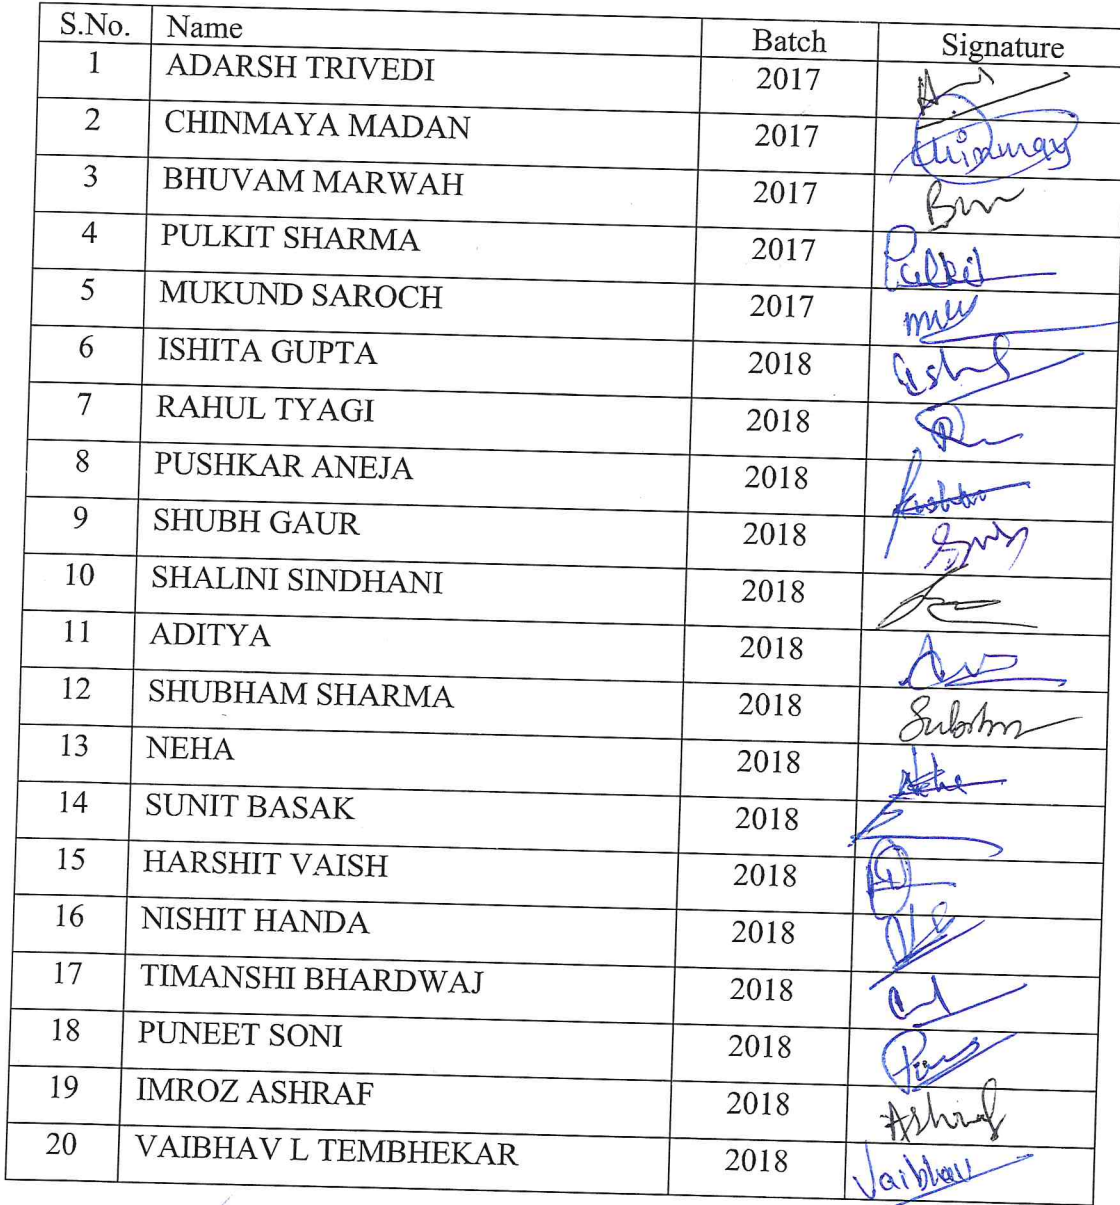 S.No. Name Batch Signature
1 ADARSH TRIVEDI 2017
2 CHINMAYA MADAN 2017 Chinmay
3 BHUVAM MARWAH 2017
4 PULKIT SHARMA 2017 Pulkit
5 MUKUND SAROCH 2017
6 ISHITA GUPTA 2018
7 RAHUL TYAGI 2018
8 PUSHKAR ANEJA 2018
9 SHUBH GAUR 2018
10 SHALINI SINDHANI 2018
11 ADITYA 2018
12 SHUBHAM SHARMA 2018
13 NEHA 2018
14 SUNIT BASAK 2018
15 HARSHIT VAISH 2018
16 NISHIT HANDA 2018
17 TIMANSHI BHARDWAJ 2018
18 PUNEET SONI 2018
19 IMROZ ASHRAF 2018 Ashraf
20 VAIBHAV L TEMBHEKAR 2018 Vaibhav